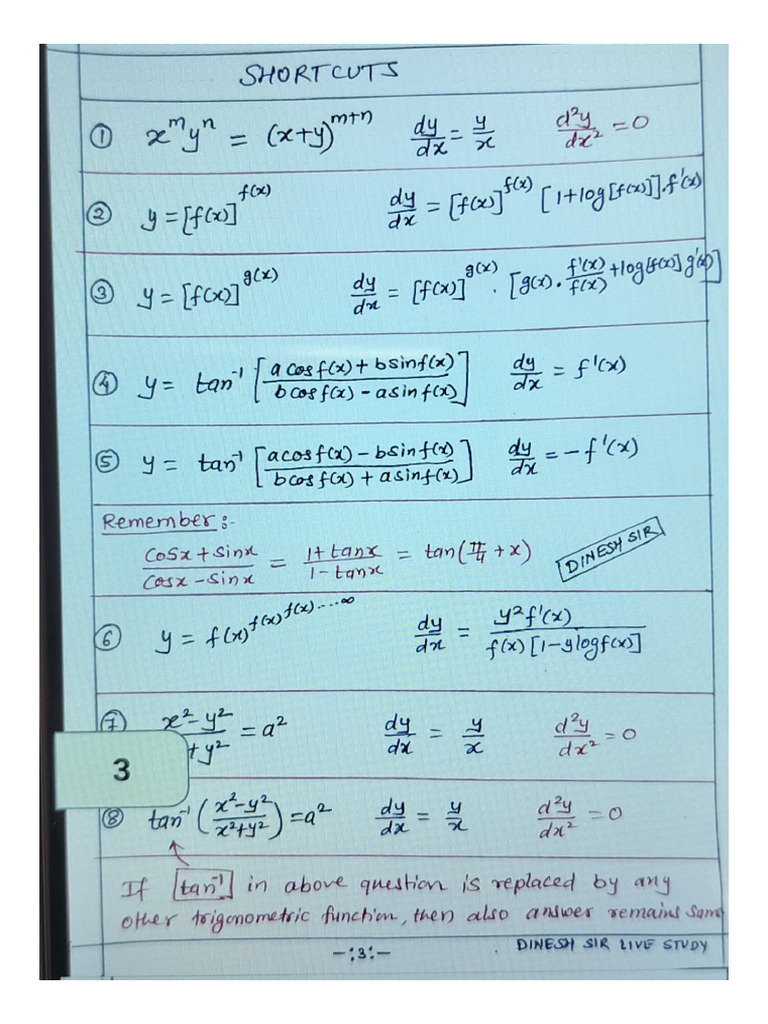 SHORTCUTS
① x^m y^n = (x+y)^(m+n) dy/dx = y/x d²y/dx² = 0
② y = [f(x)]^f(x) dy/dx = [f(x)]^f(x) [1+log[f(x)]].f'(x)
③ y = [f(x)]^g(x) dy/dx = [f(x)]^g(x) . [g(x). f'(x)/f(x) + log[f(x)] g'(x)]
④ y = tan⁻¹ [a cosf(x) + b sinf(x) / b cosf(x) - a sinf(x)] dy/dx = f'(x)
⑤ y = tan⁻¹ [a cosf(x) - b sinf(x) / b cosf(x) + a sinf(x)] dy/dx = -f'(x)
Remember:-
cosx + sinx / cosx - sinx = 1+tanx / 1-tanx = tan(π/4 + x)
DINESH SIR
⑥ y = f(x)^f(x)^f(x)....∞ dy/dx = y² f'(x) / f(x) [1-ylogf(x)]
⑦ x² - y² / + y² = a² dy/dx = y/x d²y/dx² = 0
3
⑧ tan⁻¹ (x²-y² / x²+y²) = a² dy/dx = y/x d²y/dx² = 0
If tan⁻¹ in above question is replaced by any
other trigonometric function, then also answer remains same
-:3:-
DINESH SIR LIVE STUDY